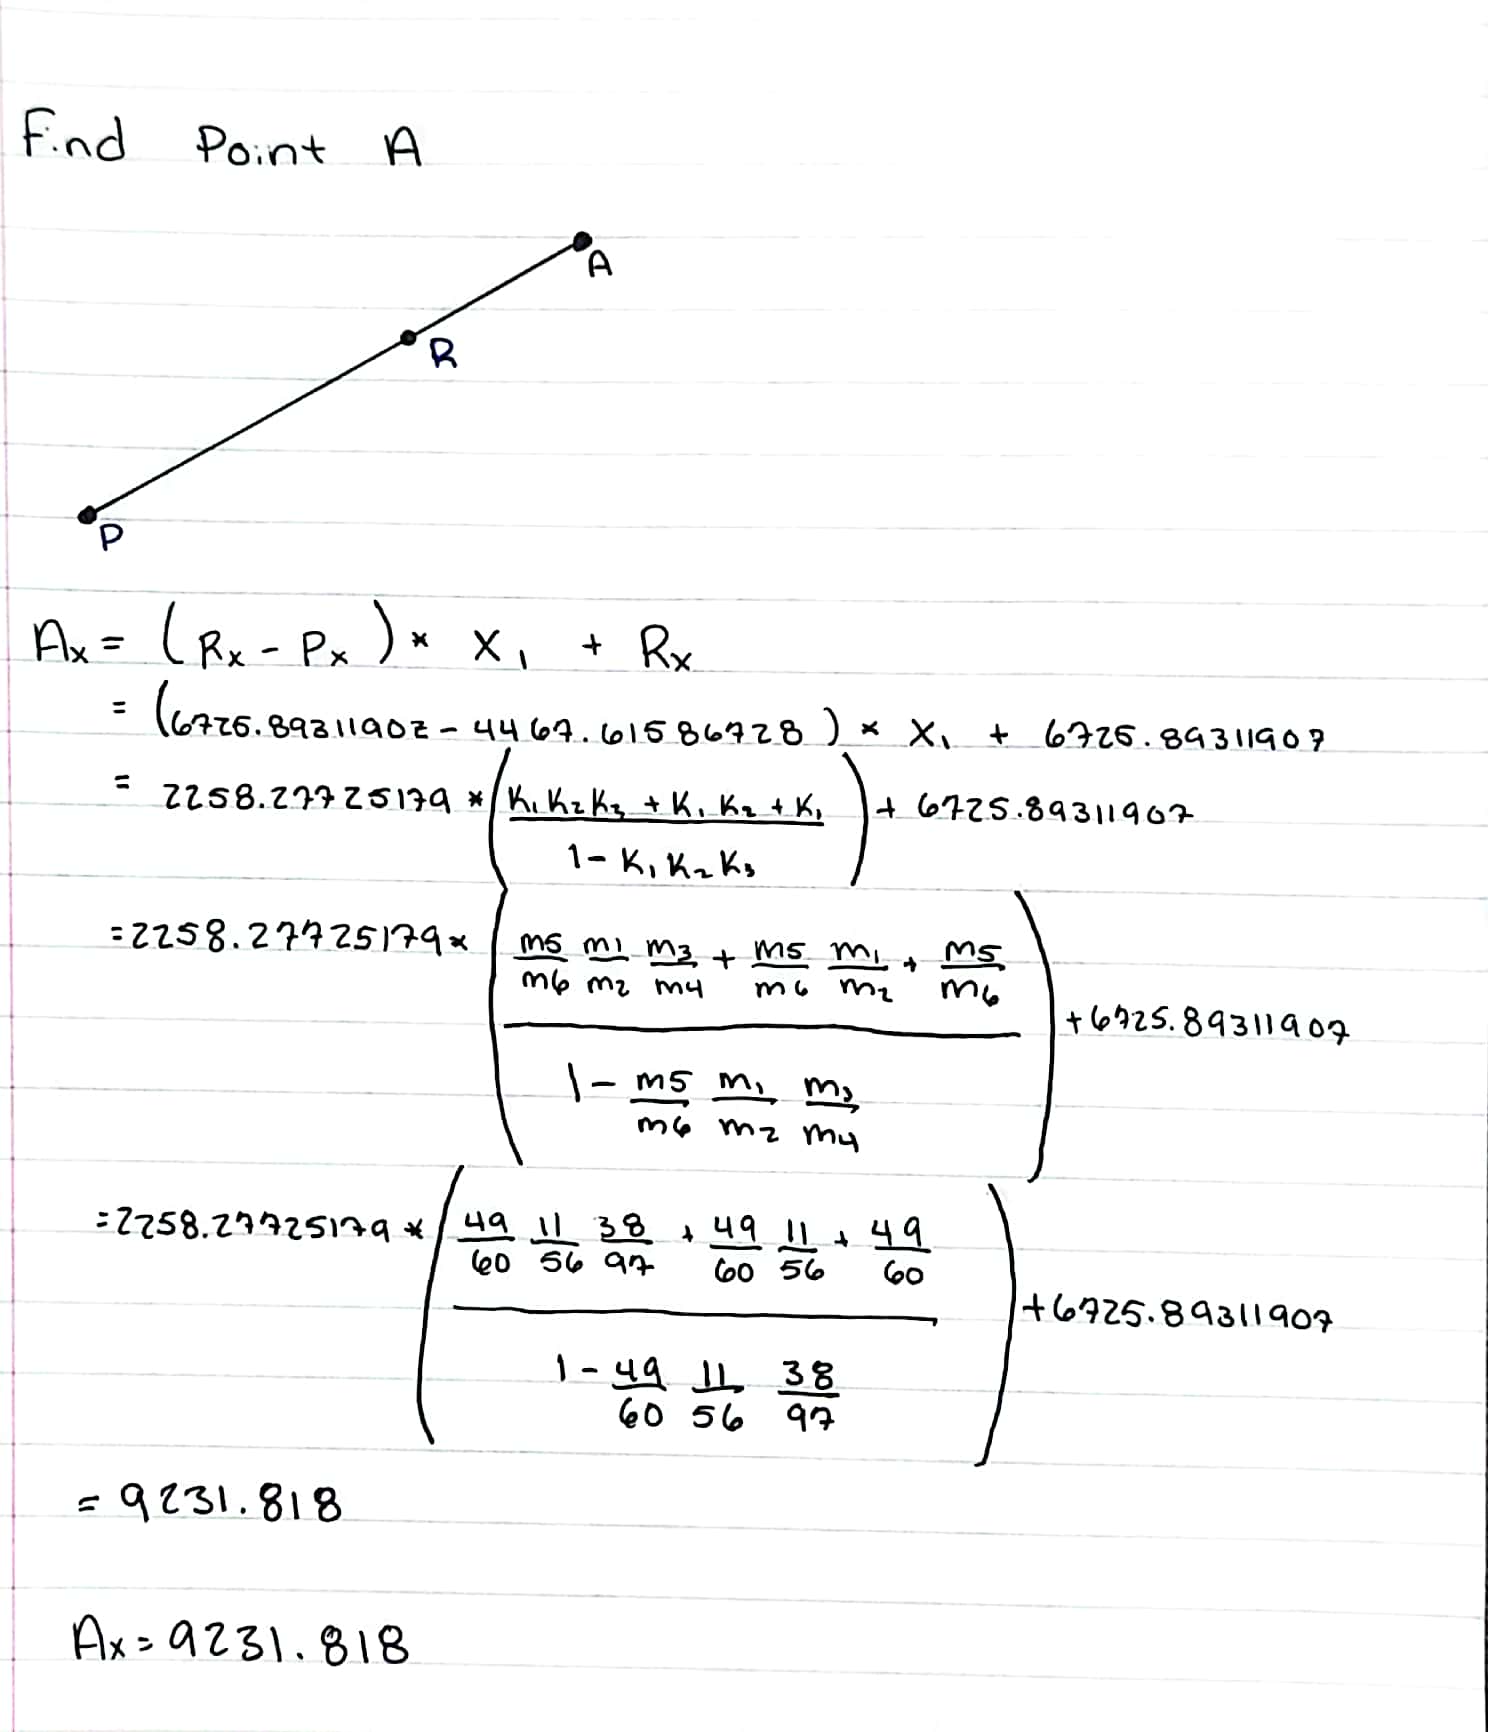 Find Point A
A
R
P
Ax = (Rx - Px) * X₁ + Rx
= (6725.89311907 - 4467.61586728) * X₁ + 6725.89311907
= 2258.27725179 * (K₁K₂K₃ + K₁K₂ + K₁ / 1 - K₁K₂K₃) + 6725.89311907
= 2258.27725179 * (m5/m6 m1/m2 m3/m4 + m5/m6 m1/m2 + m5/m6 / 1 - m5/m6 m1/m2 m3/m4) + 6725.89311907
= 2258.27725179 * (49/60 11/56 38/97 + 49/60 11/56 + 49/60 / 1 - 49/60 11/56 38/97) + 6725.89311907
= 9231.818
Ax = 9231.818